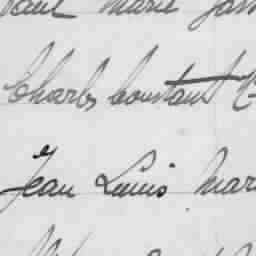 Paul Marie
Charles Constant
Jean Louis Mar